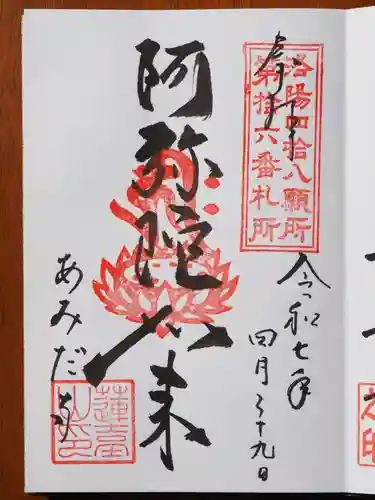 奉拝
洛陽四拾八願所
第拾六番札所
令和七年
四月二十九日
阿弥陀如来
あみだ寺
蓮臺
山印